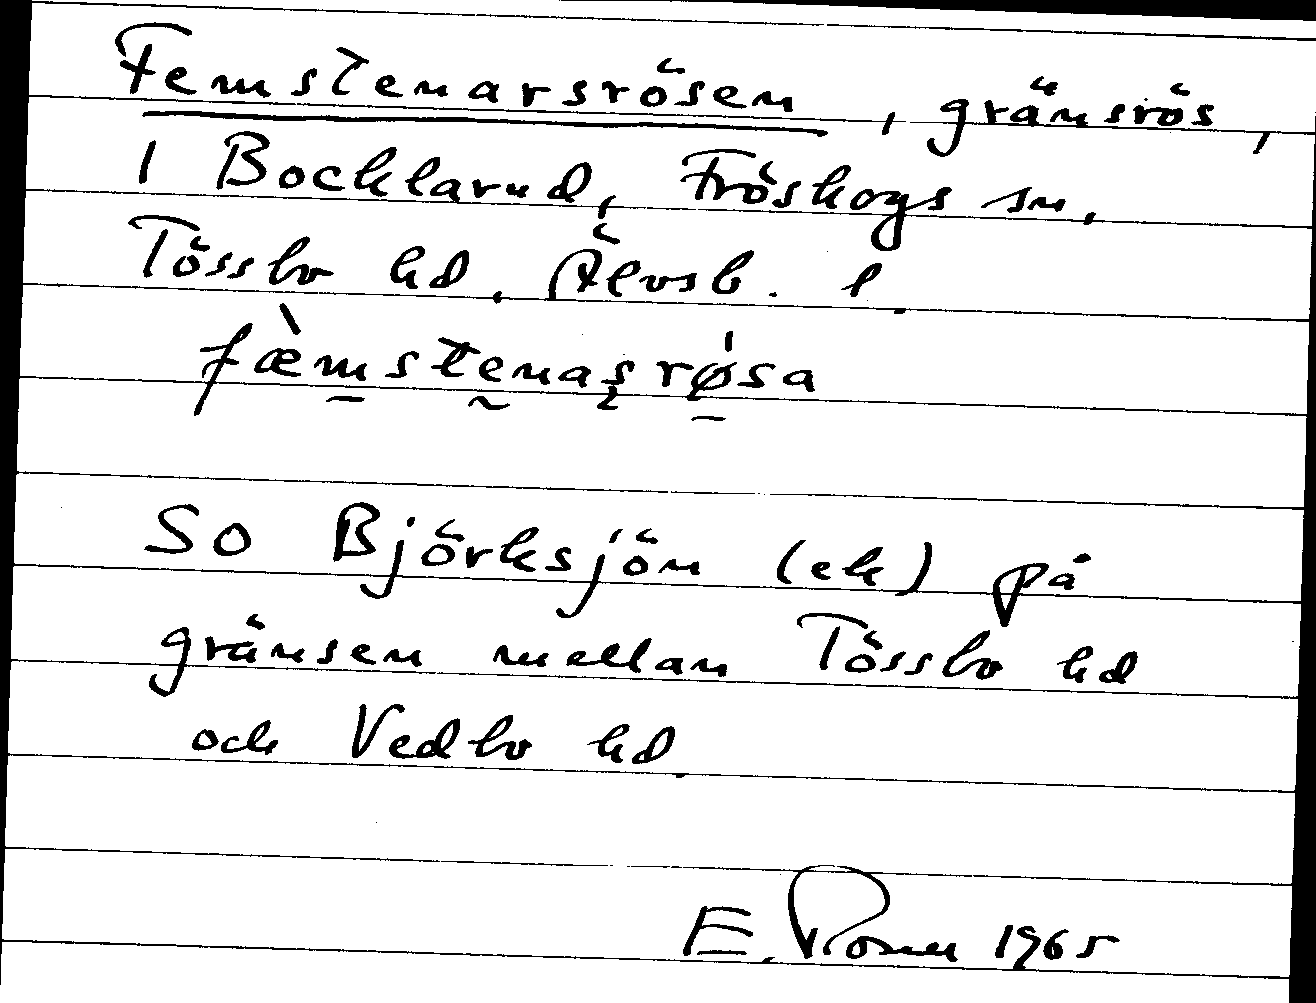 Femstenarsrösen, gränsrös,
i Bocklarud, Fröskogs sn,
Tössbo hd. Älvsb. l.
fæ̀m̱stḛnaʂrǿ̱sa
SO Björksjön (ek) på
gränsen mellan Tössbo hd
och Vedbo hd.
E. 1965